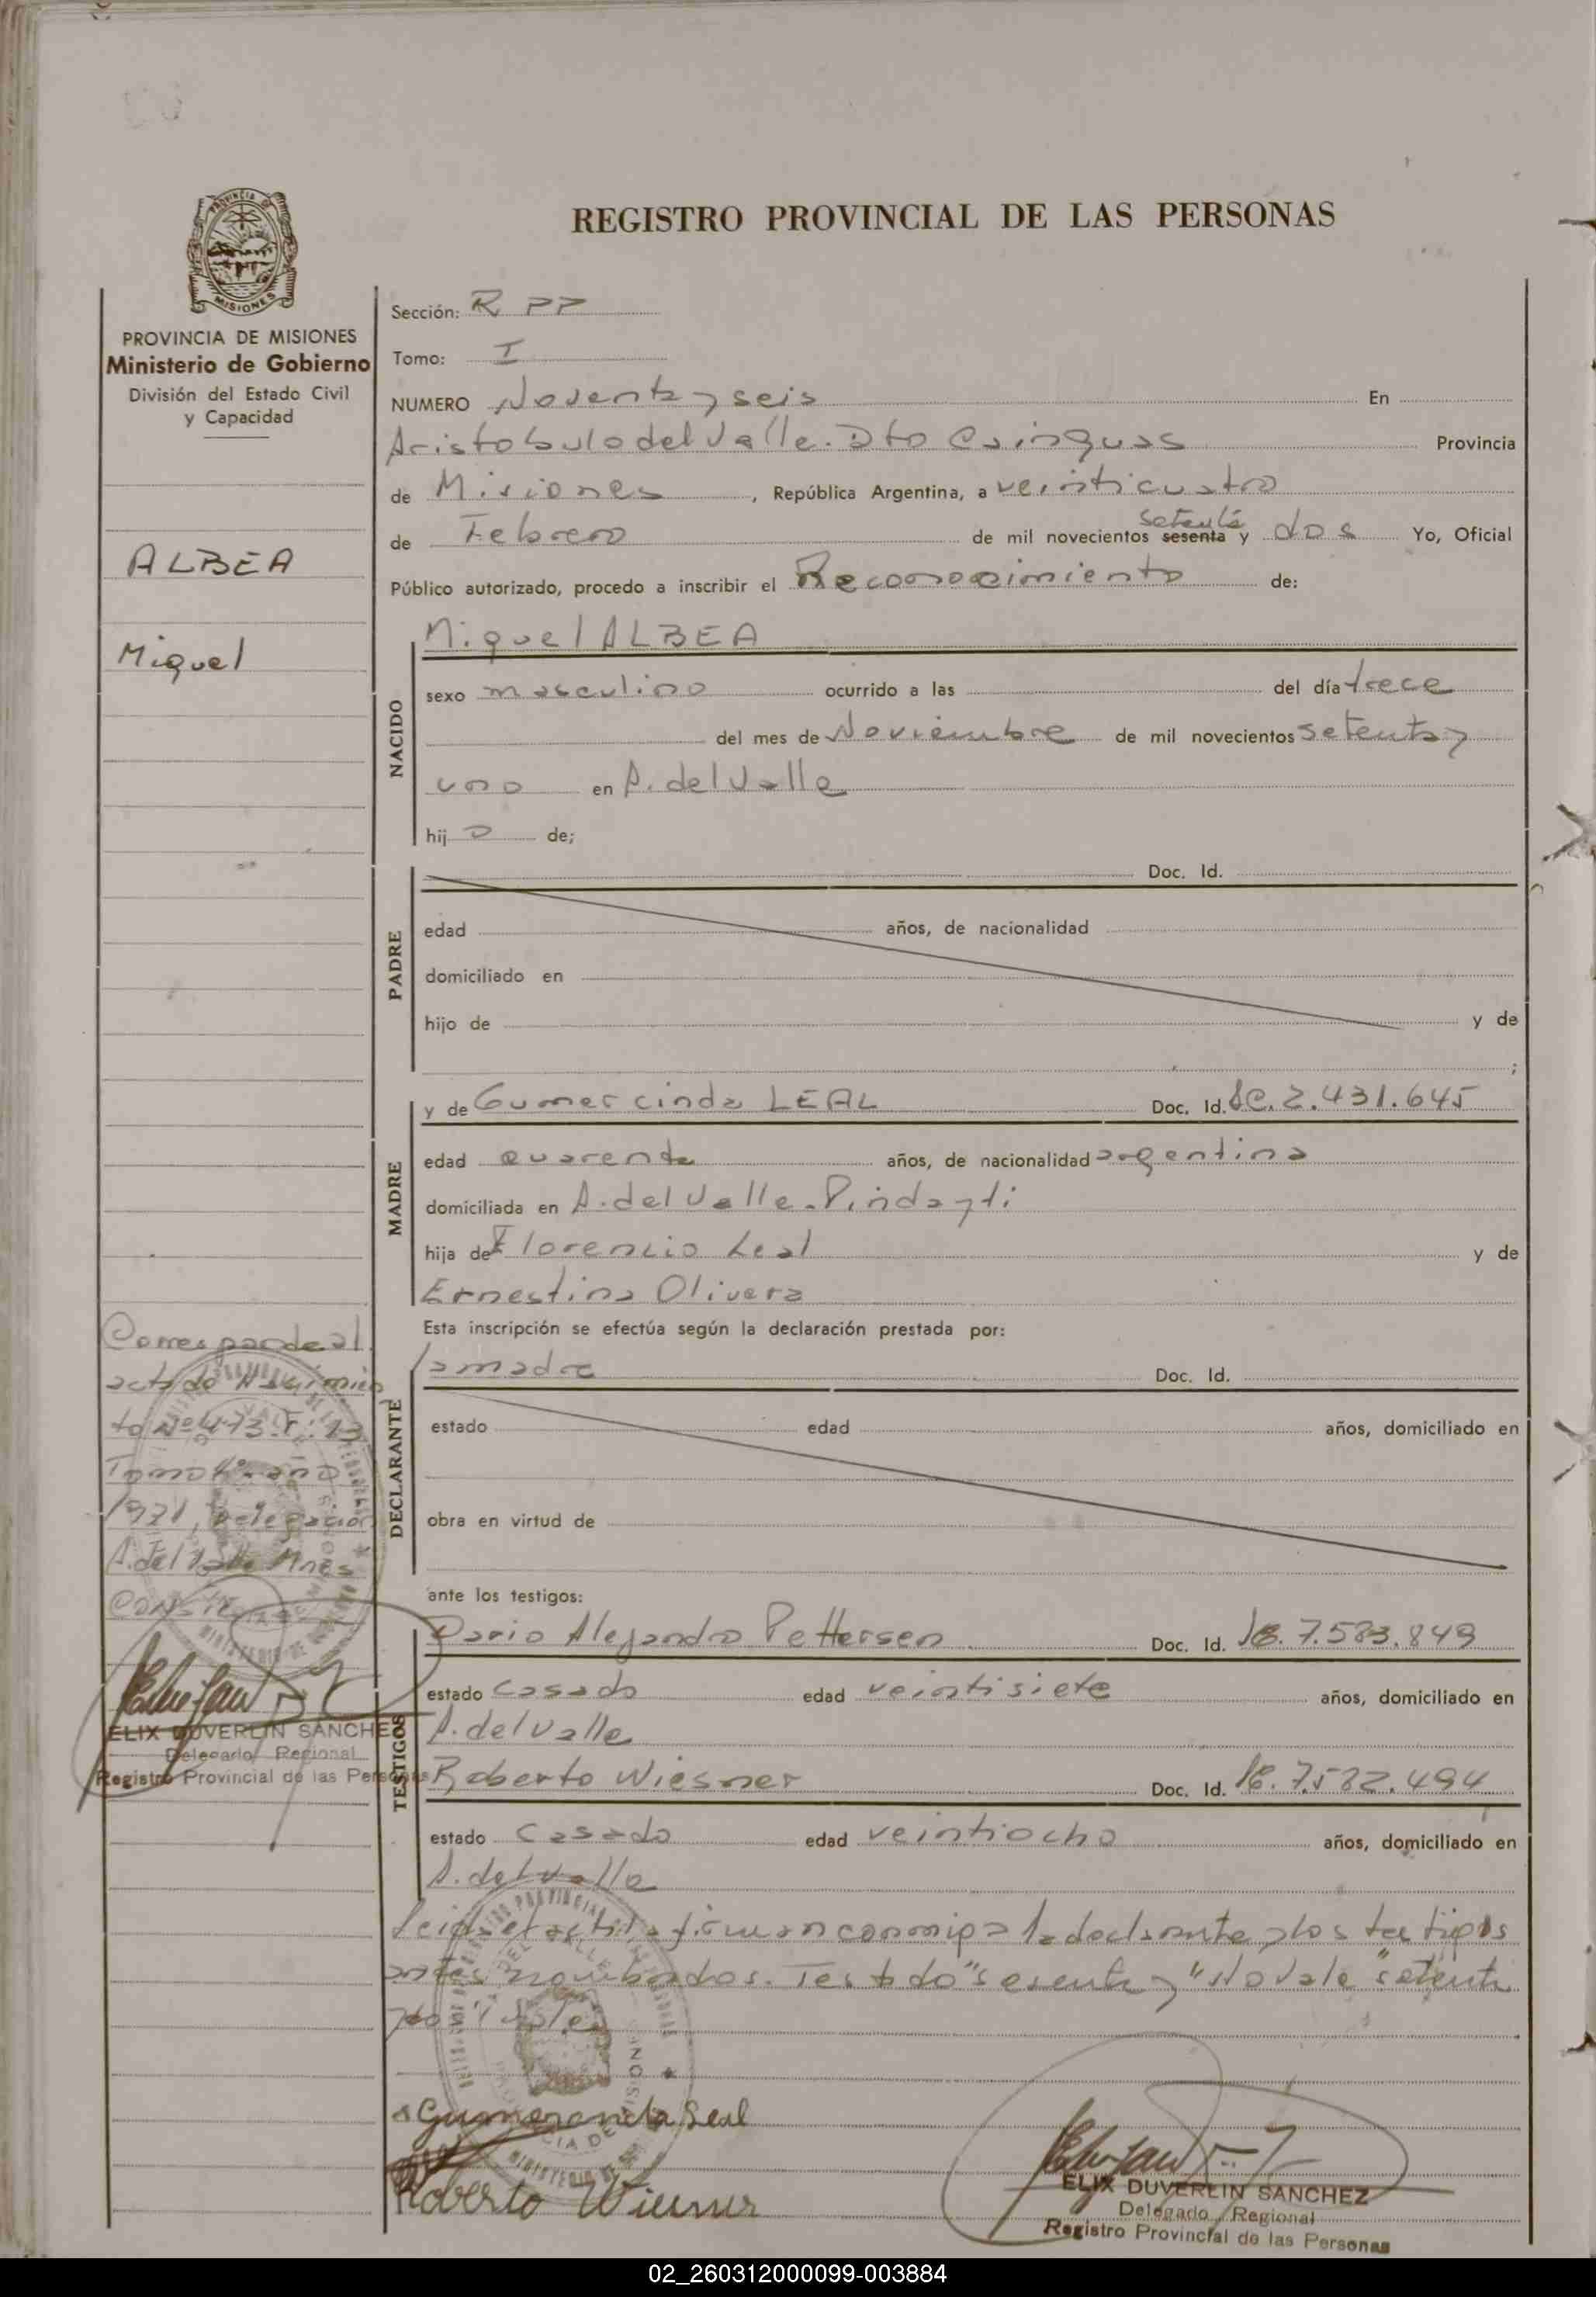 REGISTRO PROVINCIAL DE LAS PERSONAS
PROVINCIA DE MISIONES
Ministerio de Gobierno
División del Estado Civil
y Capacidad
ALBEA
Miguel
Sección: R PP
Tomo: I
NUMERO Noventa y seis En
Aristobulo del Valle. Dto Cainguas Provincia
de Misiones, República Argentina, a veinticuatro
de Febrero de mil novecientos sesenta setenta y dos Yo, Oficial
Público autorizado, procedo a inscribir el Reconocimiento de:
NACIDO
Miguel ALBEA
sexo masculino ocurrido a las del día trece
del mes de Noviembre de mil novecientos setenta y
uno en A. del Valle
hij o de;
PADRE
Doc. Id.
edad años, de nacionalidad
domiciliado en
hijo de y de
;
MADRE
y de Gumercinda LEAL Doc. Id. LC. 2.431.645
edad cuarenta años, de nacionalidad argentina
domiciliada en A. del Valle - Pindayti
hija de Florencio Leal y de
Ernestina Olivera
Esta inscripción se efectúa según la declaración prestada por:
DECLARANTE
la madre Doc. Id.
estado edad años, domiciliado en
obra en virtud de
ante los testigos:
TESTIGOS
Dario Alejandro Pettersen Doc. Id. 7.583.849
estado casado edad veintisiete años, domiciliado en
A. del Valle
Roberto Wiesner Doc. Id. 7.582.494
estado casado edad veintiocho años, domiciliado en
A. del Valle
Leida el acta la firman conmigo la declarante y los testigos
antes nombrados. Testado "sesenta y" No Vale "setenta
Vale
Corresponde al
acta de Nacimien
to Nº 473. F: 
Tomo año
1971, Delegación
A. del Valle Mnes
Conste
ELIX DUVERLIN SANCHEZ
Delegado Regional
Registro Provincial de las Personas
Gumercinda Leal
Roberto Wiesner
ELIX DUVERLIN SANCHEZ
Delegado Regional
Registro Provincial de las Personas
02_260312000099-003884